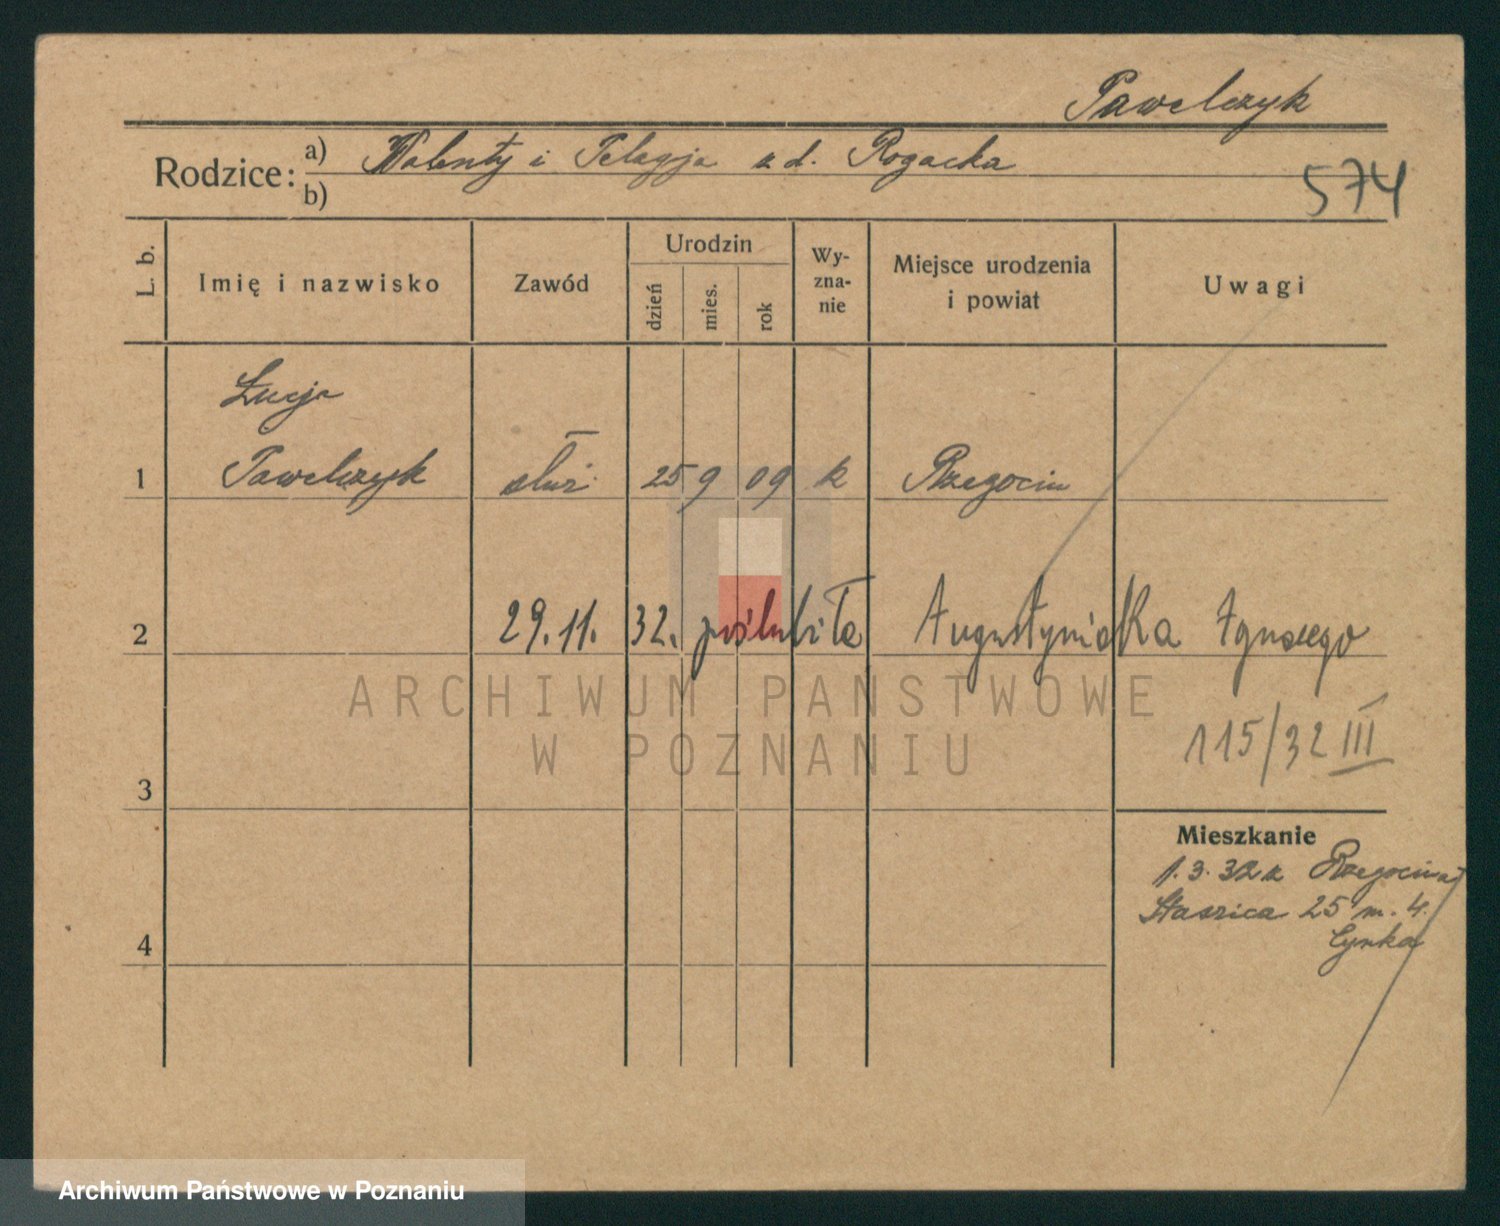 Pawelczyk
Rodzice: a) Walenty i Pelagja z d. Rogacka
574
b)
L. b.
Imię i nazwisko
Zawód
Urodzin
dzień
mies.
rok
Wy-
zna-
nie
Miejsce urodzenia
i powiat
Uwagi
Łucja
1 Pawelczyk służ. 25 9 09 k Rzegocin
2 29.11. 32. poślubiła Augustyniaka Ignacego
ARCHIWUM PAŃSTWOWE
W POZNANIU
115/32 III
3
Mieszkanie
1.3.32 z Rzegocina
Staszica 25 m. 4.
Cynka
4
Archiwum Państwowe w Poznaniu